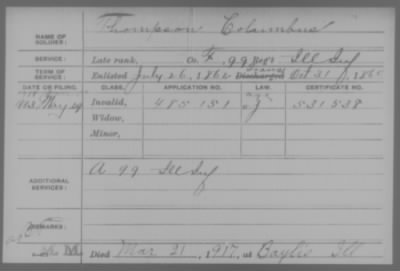 Thompson Columbus
NAME OF SOLDIER:
SERVICE: Late rank, Co. F, 99 Reg't Ill Inf
TERM OF SERVICE: Enlisted July 26, 1862 Discharged Oct 31, 1865
DATE OR FILING. CLASS. APPLICATION NO. LAW. CERTIFICATE NO.
Invalid, 485 151 J 531 538
Widow,
Minor,
ADDITIONAL SERVICES: A 99 Ill Inf
REMARKS:
Died Mar 21, 1917, at Baylis Ill